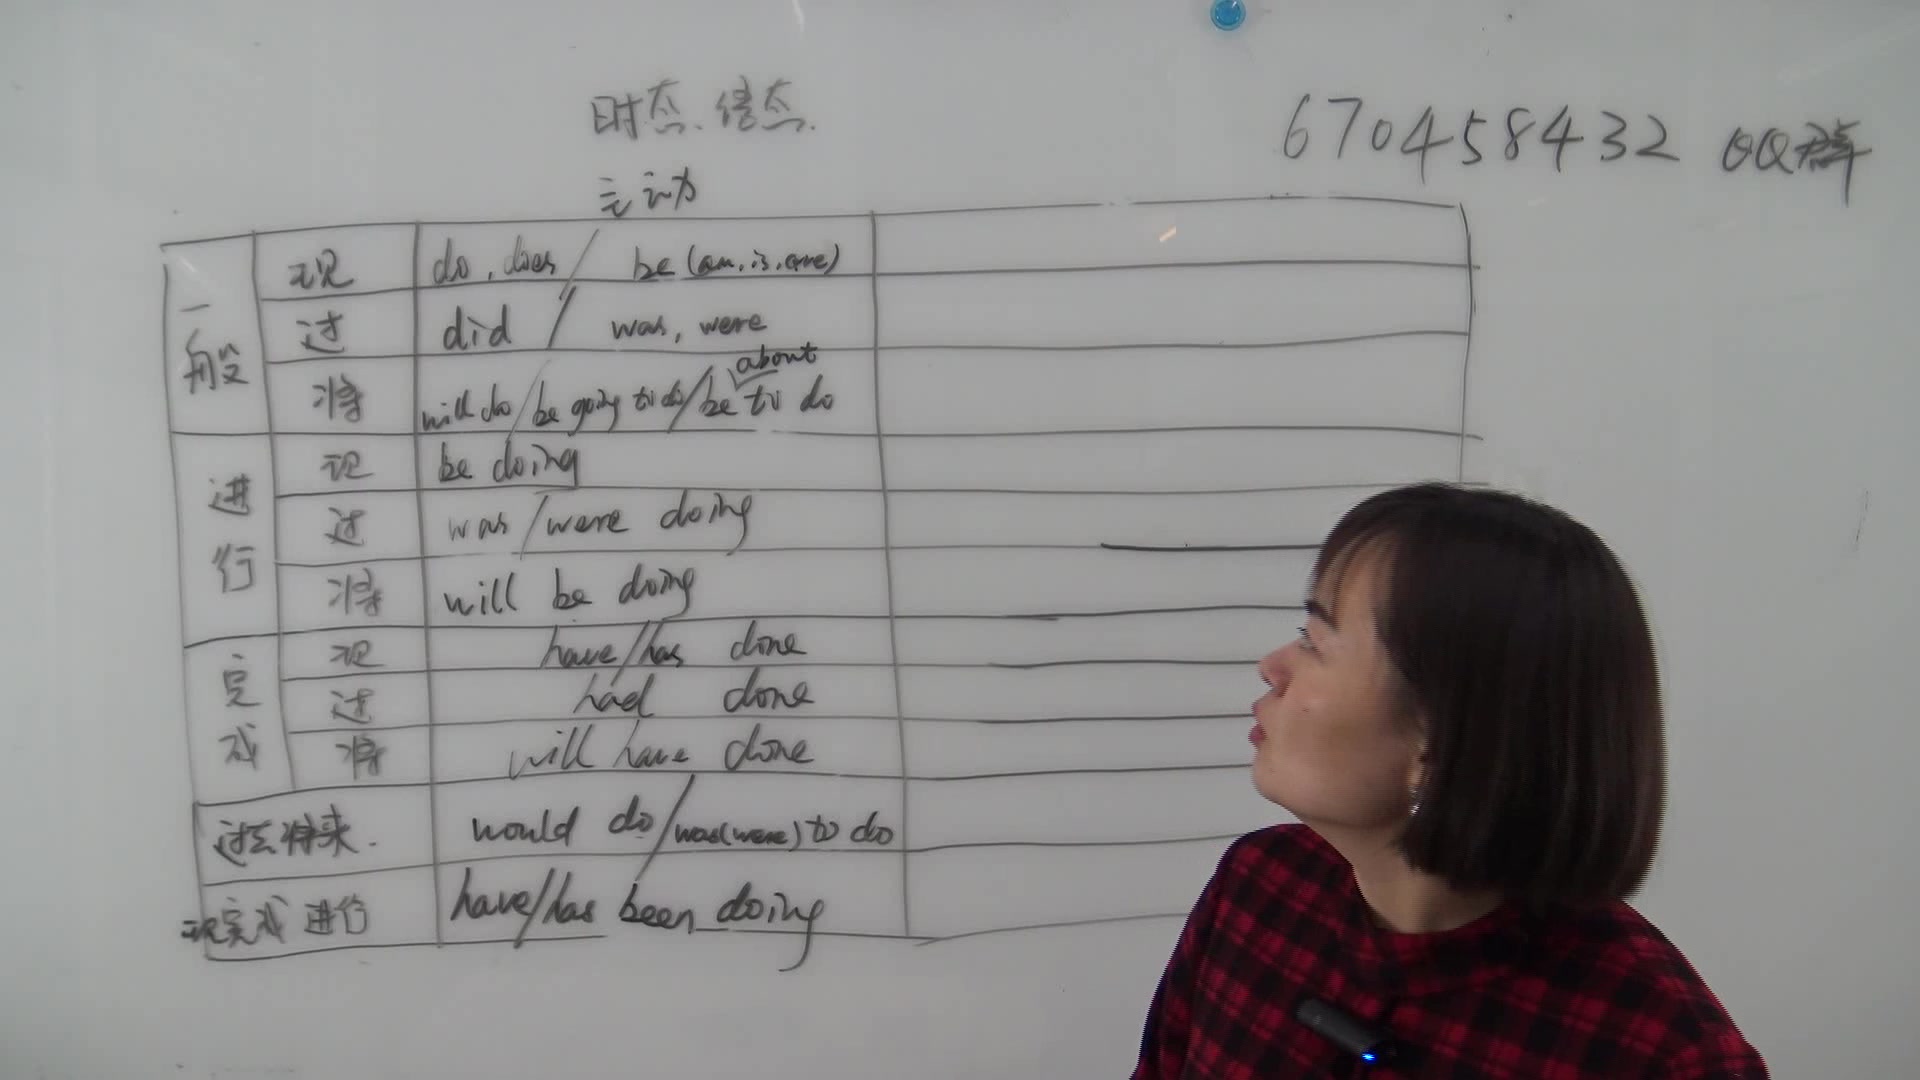 时态、语态.
670458432 QQ群
主动
一般 现 do, does / be (am, is, are)
过 did / was, were
将 will do / be going to do / be about to do
进行 现 be doing
过 was / were doing
将 will be doing
完成 现 have/has done
过 had done
将 will have done
过去将来. would do / was(were) to do
现完成进行 have/has been doing